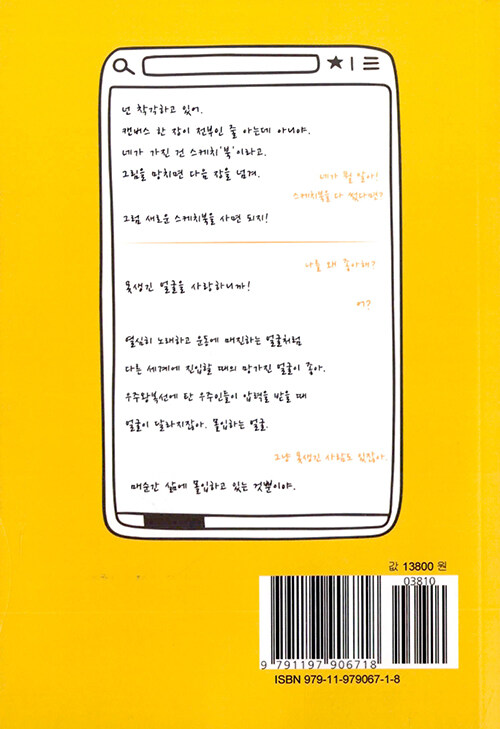 넌 착각하고 있어.
캔버스 한 장이 전부인 줄 아는데 아니야.
네가 가진 건 스케치'북'이라고.
그림을 망치면 다음 장을 넘겨.
네가 뭘 알아!
스케치북을 다 썼다면?
그럼 새로운 스케치북을 사면 되지!
나를 왜 좋아해?
못생긴 얼굴을 사랑하니까!
어?
열심히 노래하고 운동에 매진하는 얼굴처럼
다른 세계에 진입할 때의 망가진 얼굴이 좋아.
우주왕복선에 탄 우주인들이 압력을 받을 때
얼굴이 달라지잖아. 몰입하는 얼굴.
그냥 못생긴 사람도 있잖아.
매순간 삶에 몰입하고 있는 것뿐이야.
값 13800 원
03810
9 791197 906718
ISBN 979-11-979067-1-8